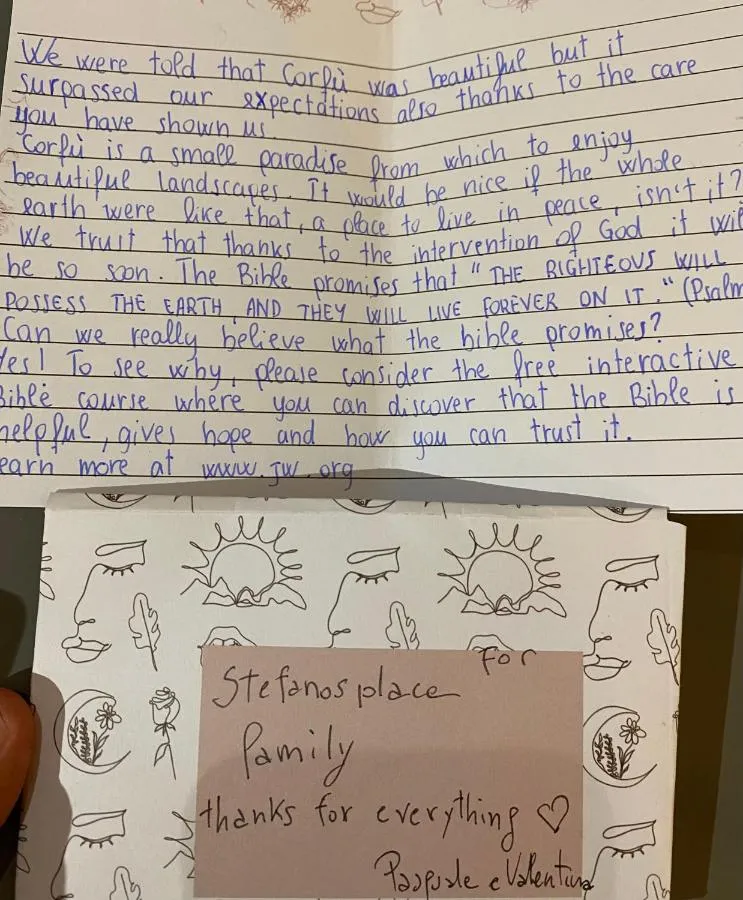 We were told that Corfù was beautiful but it
surpassed our expectations also thanks to the care
you have shown us
Corfù is a small paradise from which to enjoy
beautiful landscapes. It would be nice if the whole
earth were like that, a place to live in peace, isn't it?
We trust that thanks to the intervention of God it will
be so soon. The Bible promises that " THE RIGHTEOUS WILL
POSSESS THE EARTH AND THEY WILL LIVE FOREVER ON IT." (Psalm
Can we really believe what the bible promises?
Yes! To see why, please consider the free interactive
Bible course where you can discover that the Bible is
helpful, gives hope and how you can trust it.
earn more at www.jw.org
For
Stefanos place
family
thanks for everything ♡
Pasquale e Valentina